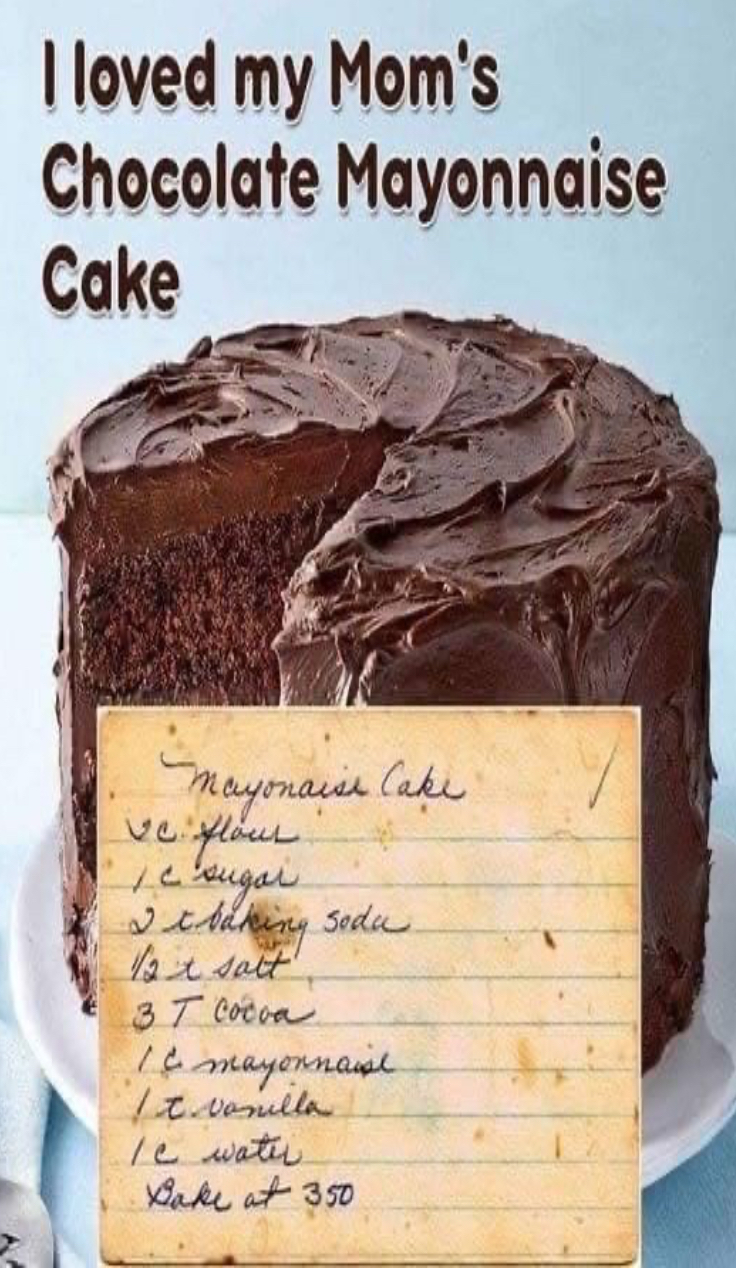 I loved my Mom's
Chocolate Mayonnaise
Cake
Mayonaise Cake
2 c. flour
1 c sugar
2 t baking soda
1/2 t salt
3 T cocoa
1 c mayonnaise
1 t vanilla
1 c water
Bake at 350